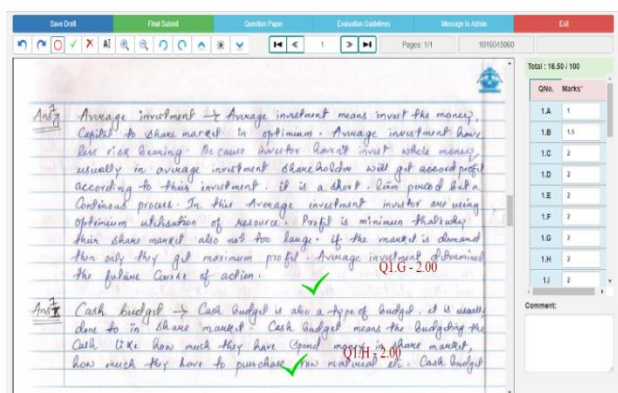 Save Draft Final Submit Question Paper Evaluation Guidelines Message to Admin Exit
1 Pages: 1/1 1016045060
Total : 16.50 / 100
QNo. Marks*
1.A 1
1.B 1.5
1.C 2
1.D 2
1.E 2
1.F 2
1.G 2
1.H 2
1.I 2
Comment:
Average investment → Average investment means invest the money,
Capital to share market in optimum. Average investment have
less risk bearing. Because investor haven't invest whole money,
usually in average investment shareholder will get accord profit
according to their investment. it is a short-term period but a
Continous process. In this Average investment investor are using
optimium utilisation of resource. Profit is minimum that's why
their share market also not too large. if the market is demand
then only they get maximum profit. Average investment determined
the future Course of action.
Q1.G - 2.00
Cash budget → Cash Budget is also a type of budget. it is usually
done to in share market. Cash Budget means the Budgeting the
Cash Like how much they have Spend money in share market,
how much they have to purchase raw material etc. Cash budget
Q1.H - 2.00